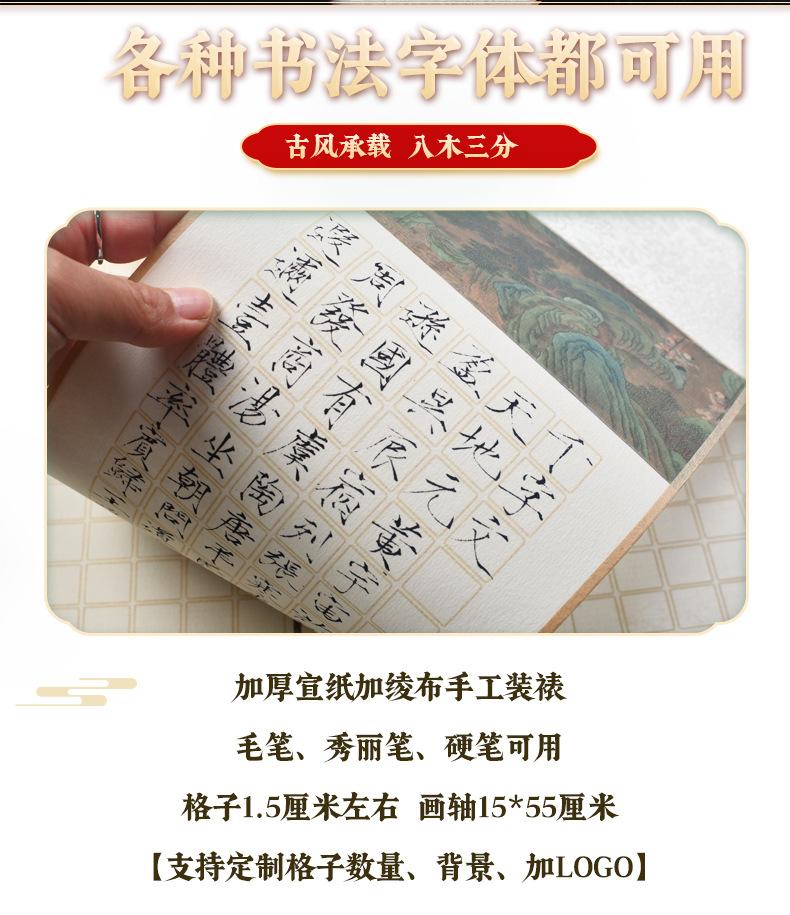 各种书法字体都可用
古风承载 八木三分
千字文
天地元黄宇宙
盈昃辰宿列張寒
遜國有虞陶唐
周發商湯坐朝問
遐邇壹體率賓歸王
加厚宣纸加绫布手工装裱
毛笔、秀丽笔、硬笔可用
格子1.5厘米左右 画轴15*55厘米
【支持定制格子数量、背景、加LOGO】